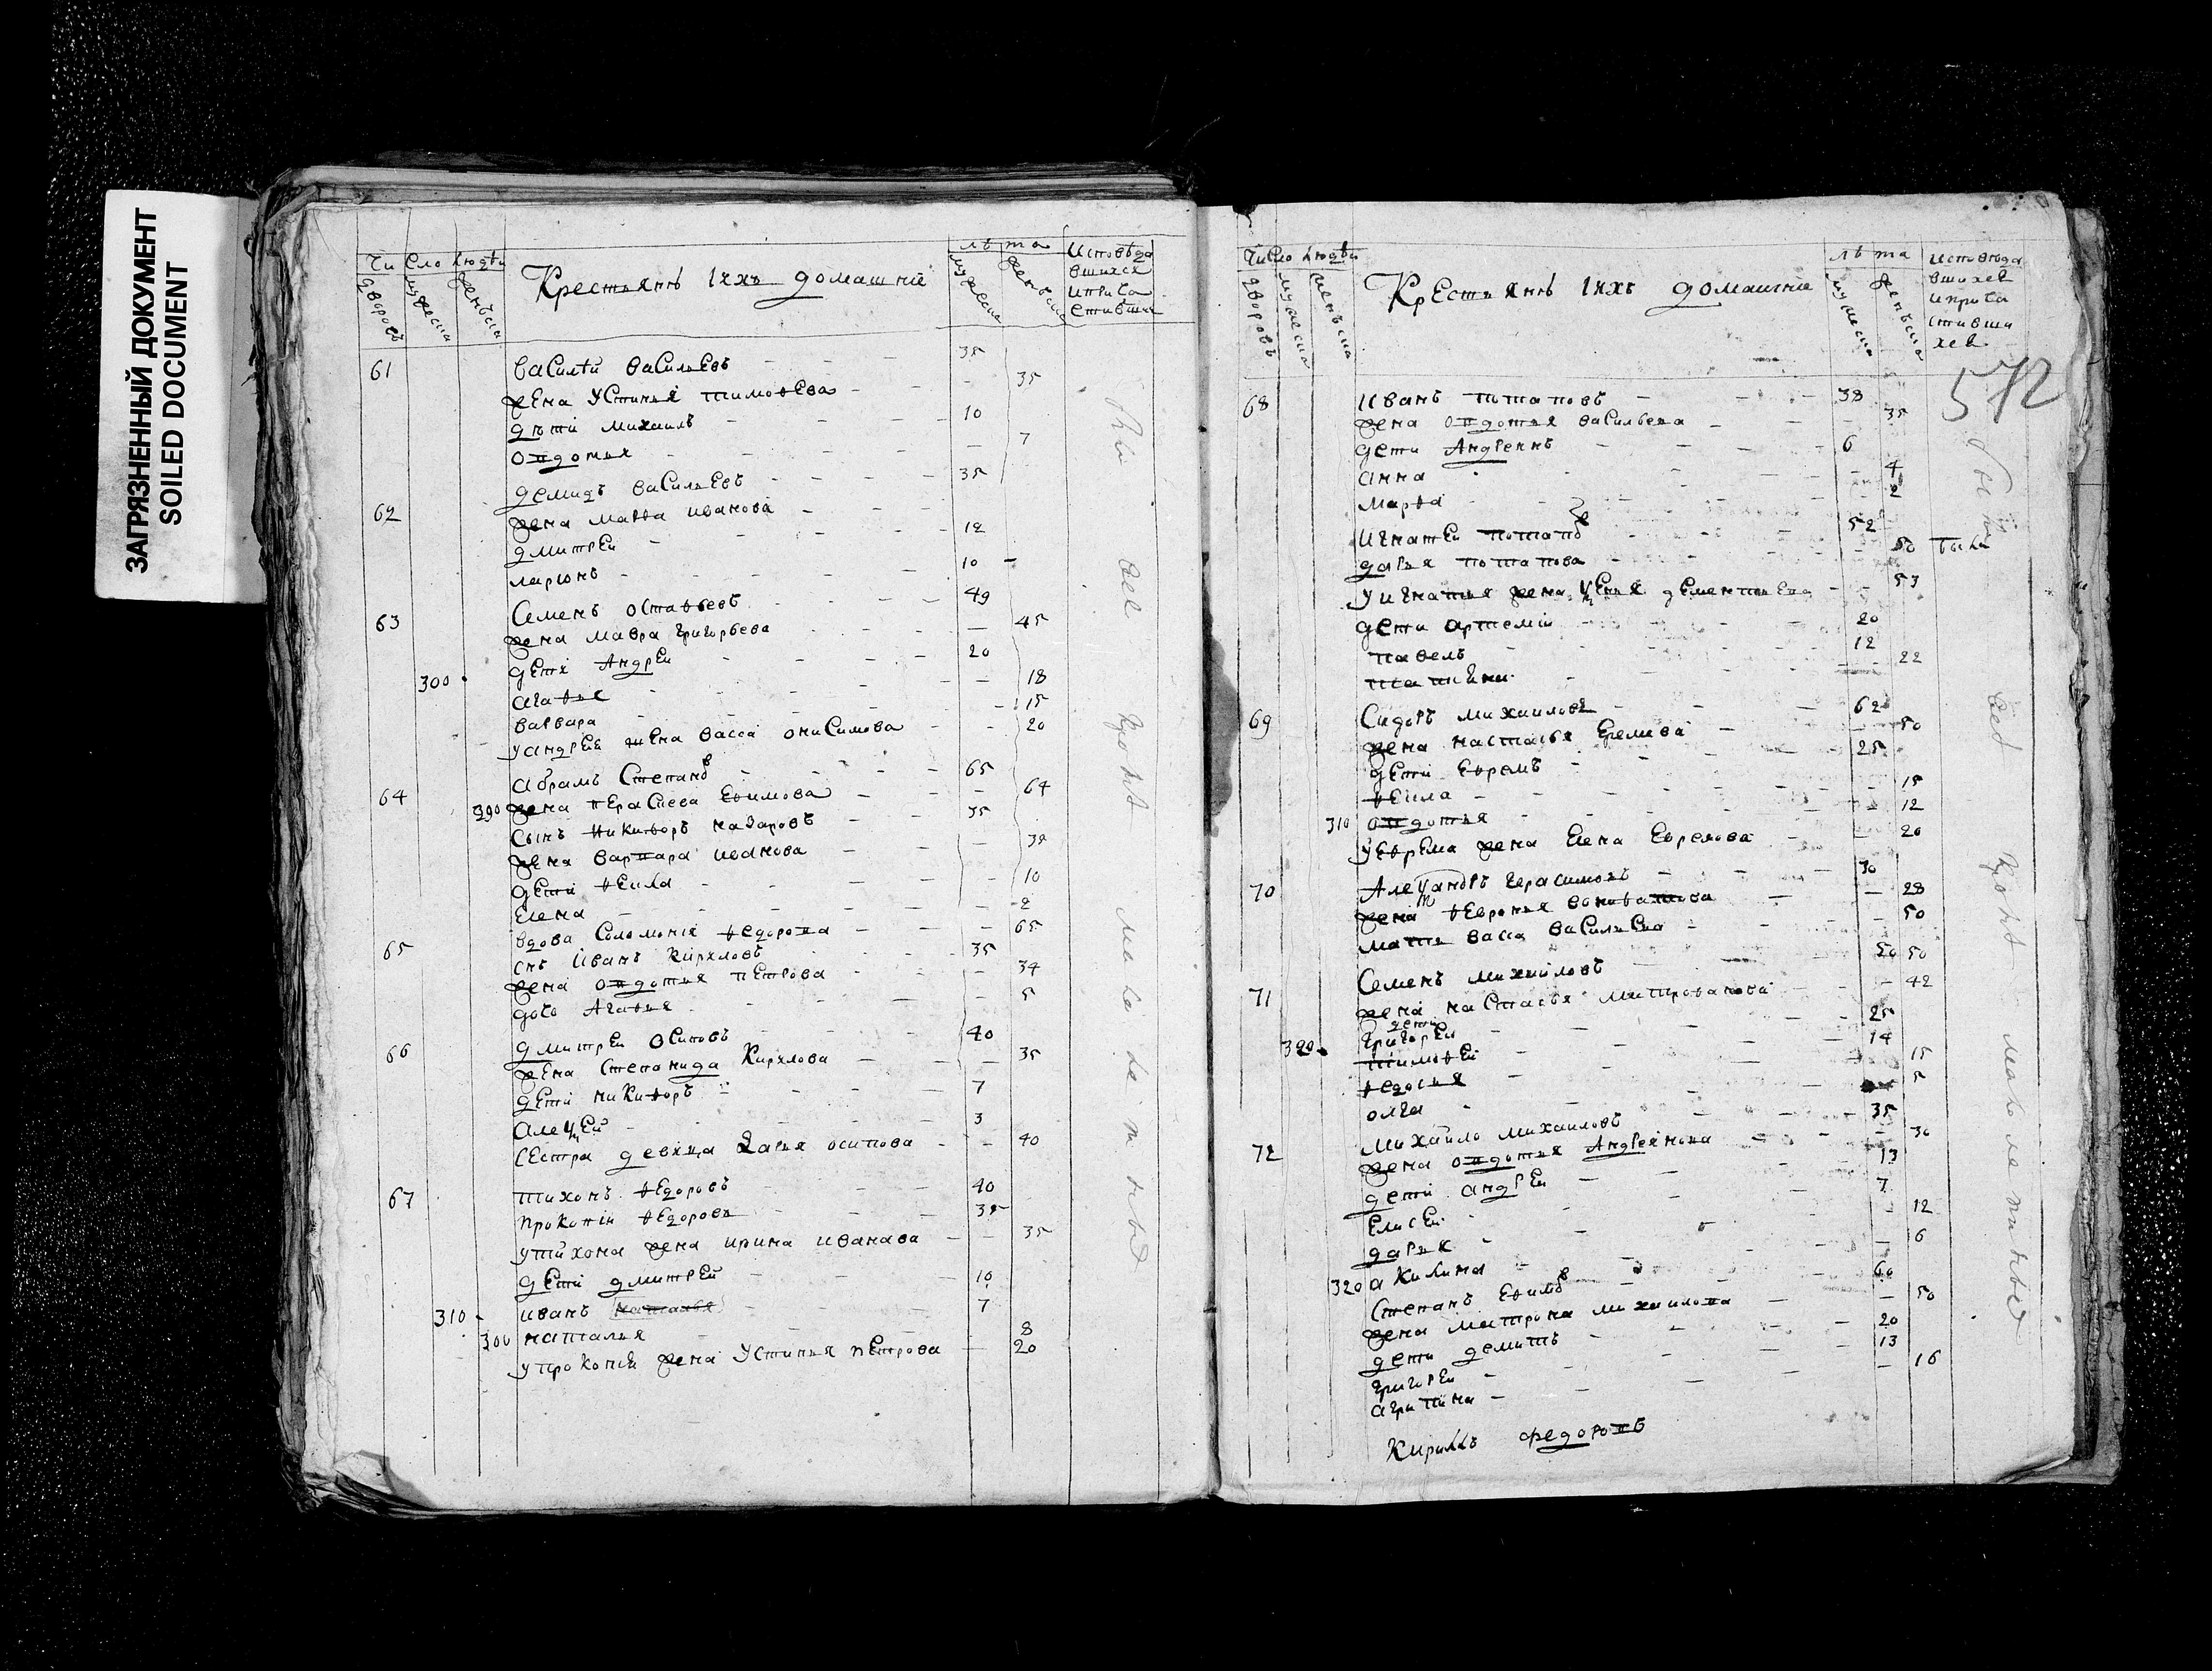 ЗАГРЯЗНЕННЫЙ ДОКУМЕНТ
SOILED DOCUMENT
Число людѣи
дворовъ мужеска женъска
Крестьянѣ Iихъ домашнiе
лѣта
мужеска женъска
Исповѣда
вшихся
иприча
стивши
61 василѣй васильевъ 35
жена устинья тимоѳѣева 35
дѣти михаилъ 10
овдотья 7
62 демидъ васильевъ 35
жена марѳа иванова
дмитрей 12
ларионъ 10
63 Семенъ остаѳьевъ 49
жена мавра григорьева 45
дети Андрей 20
300 агаѳья 18
варвара 15
уандрея жена васса онисимова 20
64 абрамъ Степановъ 65
290 жена перасиева Еѳимова 64
Сынъ никиѳоръ назаровъ 35
жена варвара иванова 34
дети ѳекла 10
Елена 2
65 вдова Соломонiя ѳедорова 65
снъ иванъ кирилловъ 35
жена овдотья пѣтрова 34
дочь Агаѳья 5
66 дмитрей осиповъ 40
жена степанида Кирилова 35
дети никиѳоръ 7
Алеѯей 3
Сестра девица Дарья осипова 40
67 тихонъ ѳедоровъ 40
прокопiй ѳедоровъ 35
утихона жена ирина иванава 35
дети дмитрей 10
310 иванъ наталья 7
300 наталья 8
упрокопiя жена устинья петрова 20
Число людѣи
дворовъ мужеска женъска
КрЕстьянѣ Iихъ домашнiе
лѣта
мужеска женъска
исповѣда
вшихся
иприча
стивши
хся
572
68 иванъ потаповъ 38
жена овдотья васильева 35
дети Андреянъ 6
анна 4
марѳа 2
игнатей потаповъ 52
дарья потапова 50 были
уигнатья жена ѯенья дементьева 53
дети артемiй 20
павелъ 12
22
69 Сидоръ михаиловъ 62
жена настасья Еремева 50
дети Еѳремъ 25
ѳекла 15
310 овдотья 12
уеѳрема жена Елена Еѳремова 20
70 Алеѯандръ герасимовъ 30
жена ѳевронья 28
мать васса василева 50
71 Семенъ михайловъ 50 50
жена настасья митрованова 42
дети
григорей 25
320 тимоѳей 14
ѳедосья 15
олга 5
72 михайло михаиловъ 35
жена овдотья Андреянова 30
дети андрей 13
Елисей 7
дарья 12
320 акилина 6
Степанъ Еѳимовъ 60
жена матрона михаилова 50
дети демитъ 20
григорей 13
агрипина 16
Кирилъ ѳедоровъ